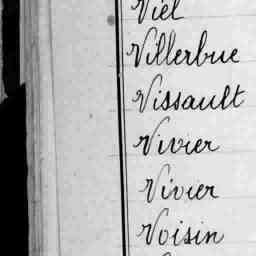 Viel
Villerbue
Vissault
Vivier
Vivier
Voisin